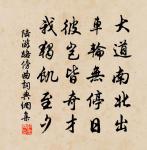 大道南北出
車輪無停日
彼豈皆奇才
我獨飢至夕
陸游路傍曲詞典網集